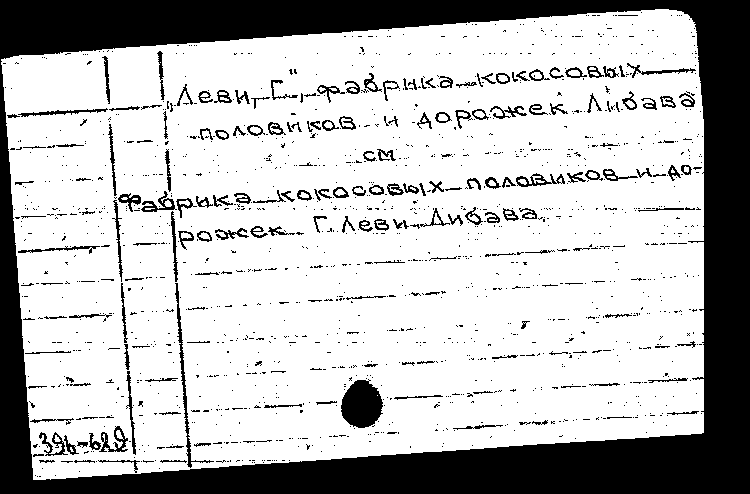 „Леви, Г.", фабрика кокосовых
половиков и дорожек Либава
см
Фабрика кокосовых половиков и до-
рожек Г. Леви Либава.